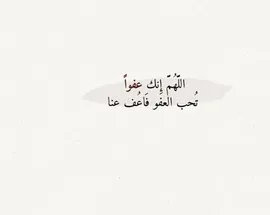 اللّهُمّ إِنك عفواً
تُحب العفو فَاعُف عنا